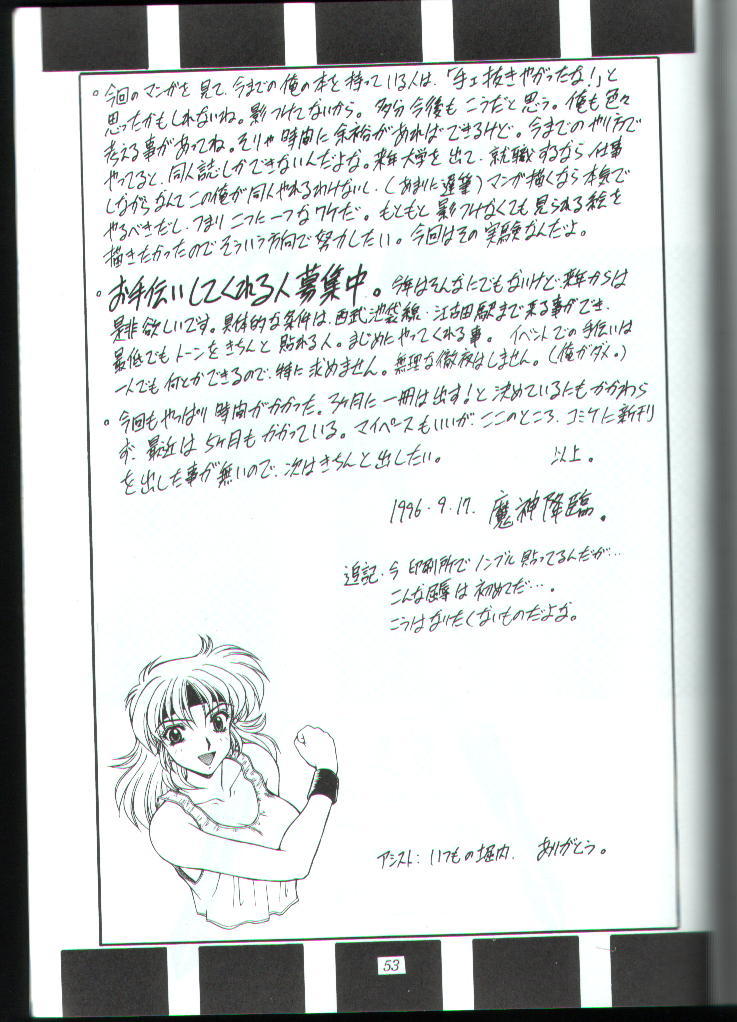 。今回のマンガを見て、今までの俺の本を持っている人は、「手ェ抜きやがったな!」と
思ったかもしれないね。影つけてないから。多分今後もこうだと思う。俺も色々
考える事があってね。そりゃ時間に余裕があればできるけど。今までのやり方で
やってると、同人誌しかできないんだよな。来年大学を出て、就職するなら仕事
しながらなんてこの俺が同人やれるわけないし、(あまりに遅筆)マンガ描くなら本気で
やるべきだし、つまり二つに一つなワケだ。もともと影つけなくても見られる絵を
描きたかったのでそういう方向で努力したい。今回はその実験なんだよ。
。お手伝いしてくれる人募集中。今年はそんなにでもないけど、来年からは
是非欲しいです。具体的な条件は、西武池袋線・江古田駅まで来る事ができ、
最低でもトーンをきちんと貼れる人。まじめにやってくれる事。イベントでの手伝いは
一人でも何とかできるので、特に求めません。無理な徹夜はしません。(俺がダメ。)
。今回もやっぱり時間がかかった。3ヶ月に一冊は出す!と決めているにもかかわら
ず、最近は5ヶ月もかかっている。マイペースもいいが、ここのところ、コミケに新刊
を出した事が無いので、次はきちんと出したい。 以上。
1996.9.17. 魔神降臨。
追記・今印刷所でノンブル貼ってるんだが…
こんな屈辱は初めてだ…。
こうはなりたくないものだよな。
アシスト:いつもの堀内. ありがとう。
53